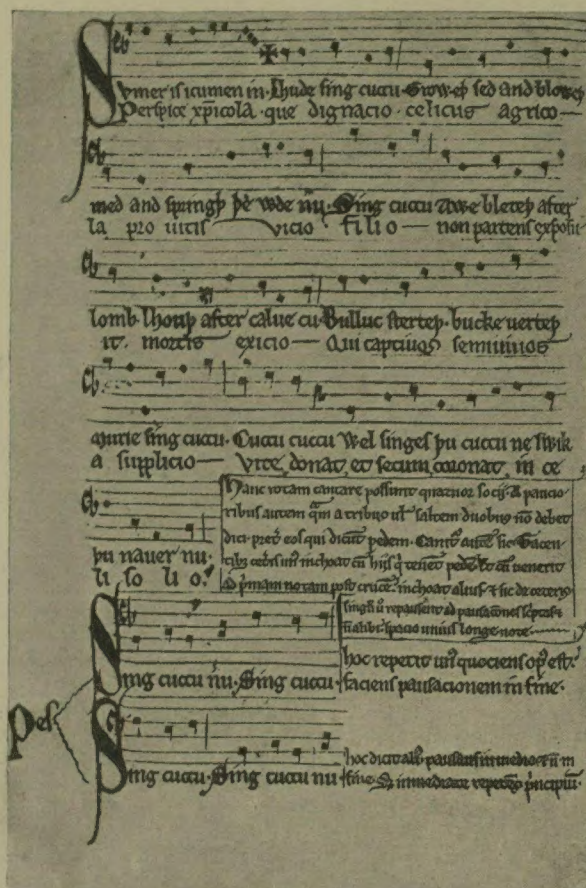 Sumer is icumen in. Lhude sing cuccu. Groweþ sed and bloweþ
Perspice xp̄icola que dignacio celicus agrico
med and springþ þe wde nu. Sing cuccu Awe bleteþ after
la pro uitis vicio filio non parcens exposu
lomb. lhouþ after calue cu. Bulluc sterteþ. bucke uerteþ
it mortis exicio Qui captiuos semiuiuos
murie sing cuccu. Cuccu cuccu Wel singes þu cuccu ne swik
a supplicio vite donat et secum coronat in ce
þu nauer nu.
li solio.
Hanc rotam cantare possunt quatuor socij. A paucio
ribus autem q̃m a tribus ul saltem duobus nō debet
dici. preter eos qui dicūt pedem. Canitur autē sic. Tacen
tibȝ ceteris unus inchoat cū hijs qui tenent pedē. Et cū venerit
ad primam notam post crucē. inchoat alius. et sic de ceteris
singuli repausent ad pausacōnes scriptas et
nō alibi. spacio unius longe note
Sing cuccu nu. Sing cuccu.
hoc repetit unus quociens opus est.
faciens pausacionem in fine.
Pes
Sing cuccu. Sing cuccu nu
hoc dicit alius pausans in medio et nō in
fine. Set inmediate repetens principiū.